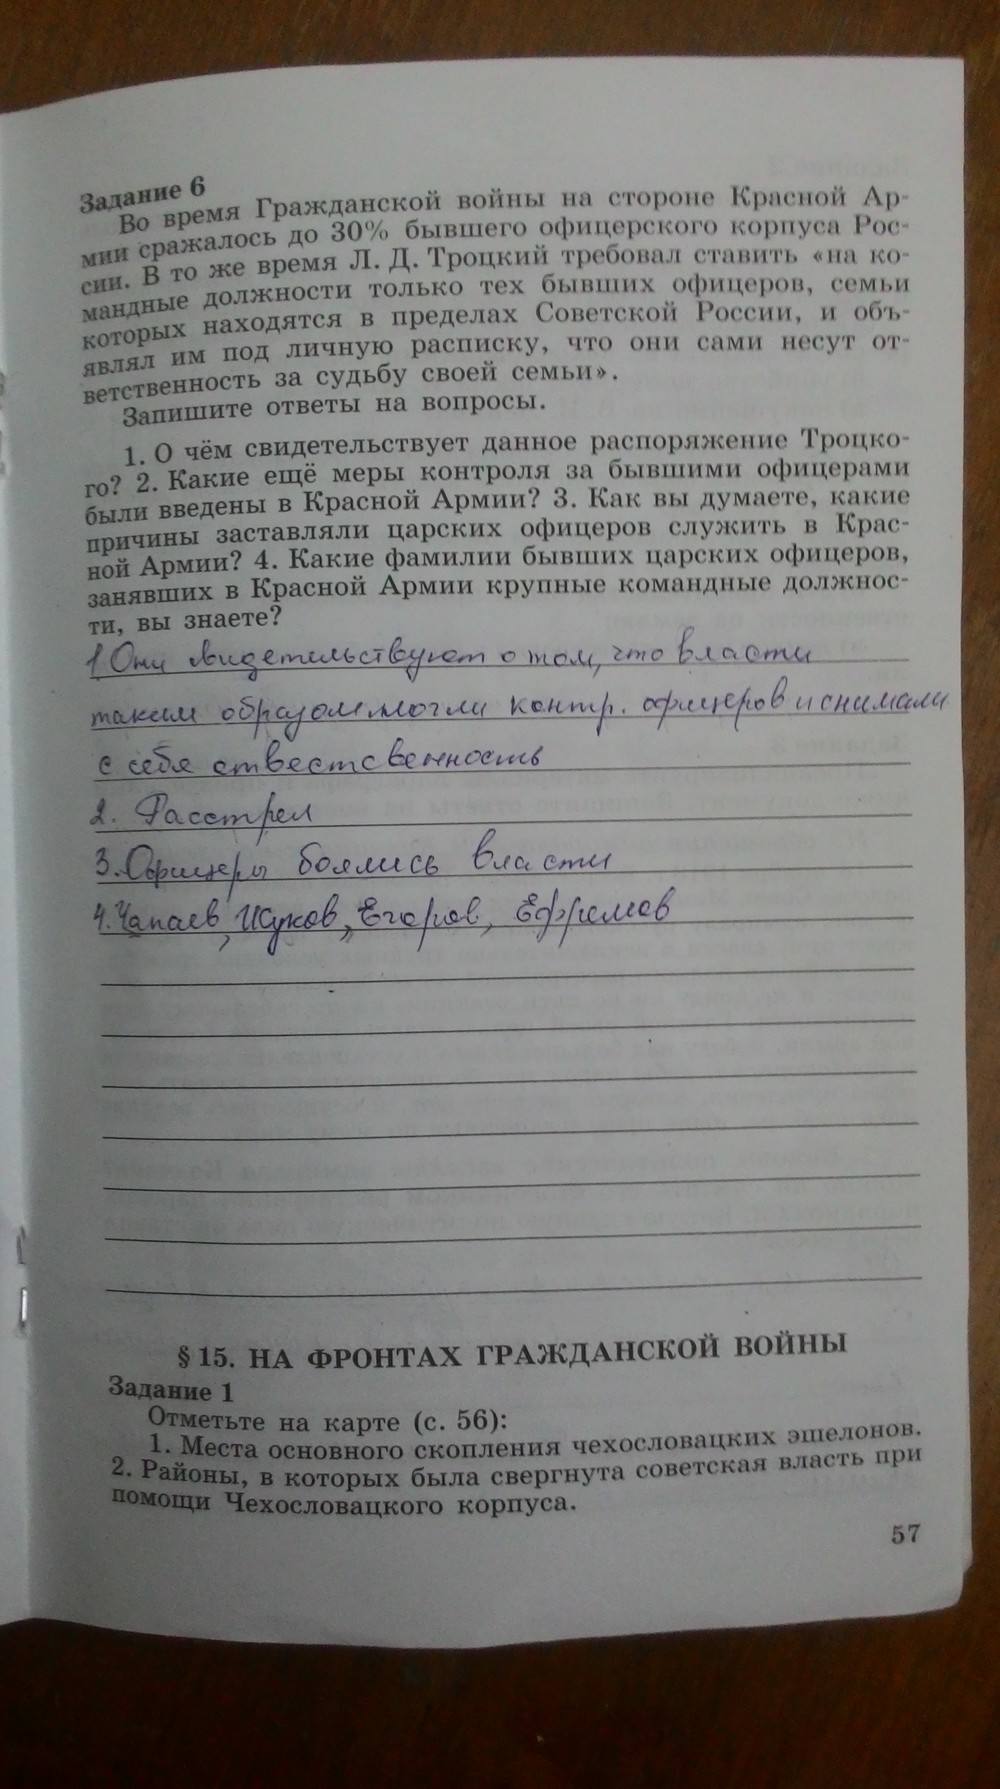 Задание 6
Во время Гражданской войны на стороне Красной Ар-
мии сражалось до 30% бывшего офицерского корпуса Рос-
сии. В то же время Л. Д. Троцкий требовал ставить «на ко-
мандные должности только тех бывших офицеров, семьи
которых находятся в пределах Советской России, и объ-
являл им под личную расписку, что они сами несут от-
ветственность за судьбу своей семьи».
Запишите ответы на вопросы.
1. О чём свидетельствует данное распоряжение Троцко-
го? 2. Какие ещё меры контроля за бывшими офицерами
были введены в Красной Армии? 3. Как вы думаете, какие
причины заставляли царских офицеров служить в Крас-
ной Армии? 4. Какие фамилии бывших царских офицеров,
занявших в Красной Армии крупные командные должнос-
ти, вы знаете?
1 Они свидетельствуют о том, что власти
таким образом могли контр. офицеров и снимали
с себя отвестсвенность
2. Расстрел
3. Офицеры боялись власти
4. Чапаев, Жуков, Егоров, Ефремов
§ 15. НА ФРОНТАХ ГРАЖДАНСКОЙ ВОЙНЫ
Задание 1
Отметьте на карте (с. 56):
1. Места основного скопления чехословацких эшелонов.
2. Районы, в которых была свергнута советская власть при
помощи Чехословацкого корпуса.
57